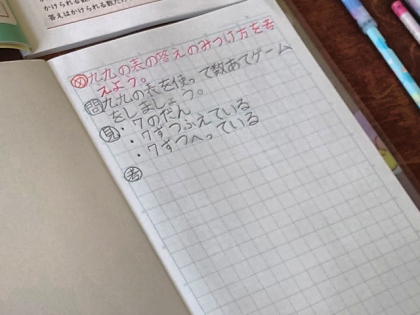 かけられる数
答えはかけられる数だけ
㋱九九の表の答えのみつけ方を考
えよう。
㉄九九の表を使って数あてゲーム
をしましょう。
㊊・7のだん
・7ずつふえている
・7ずつへっている
考